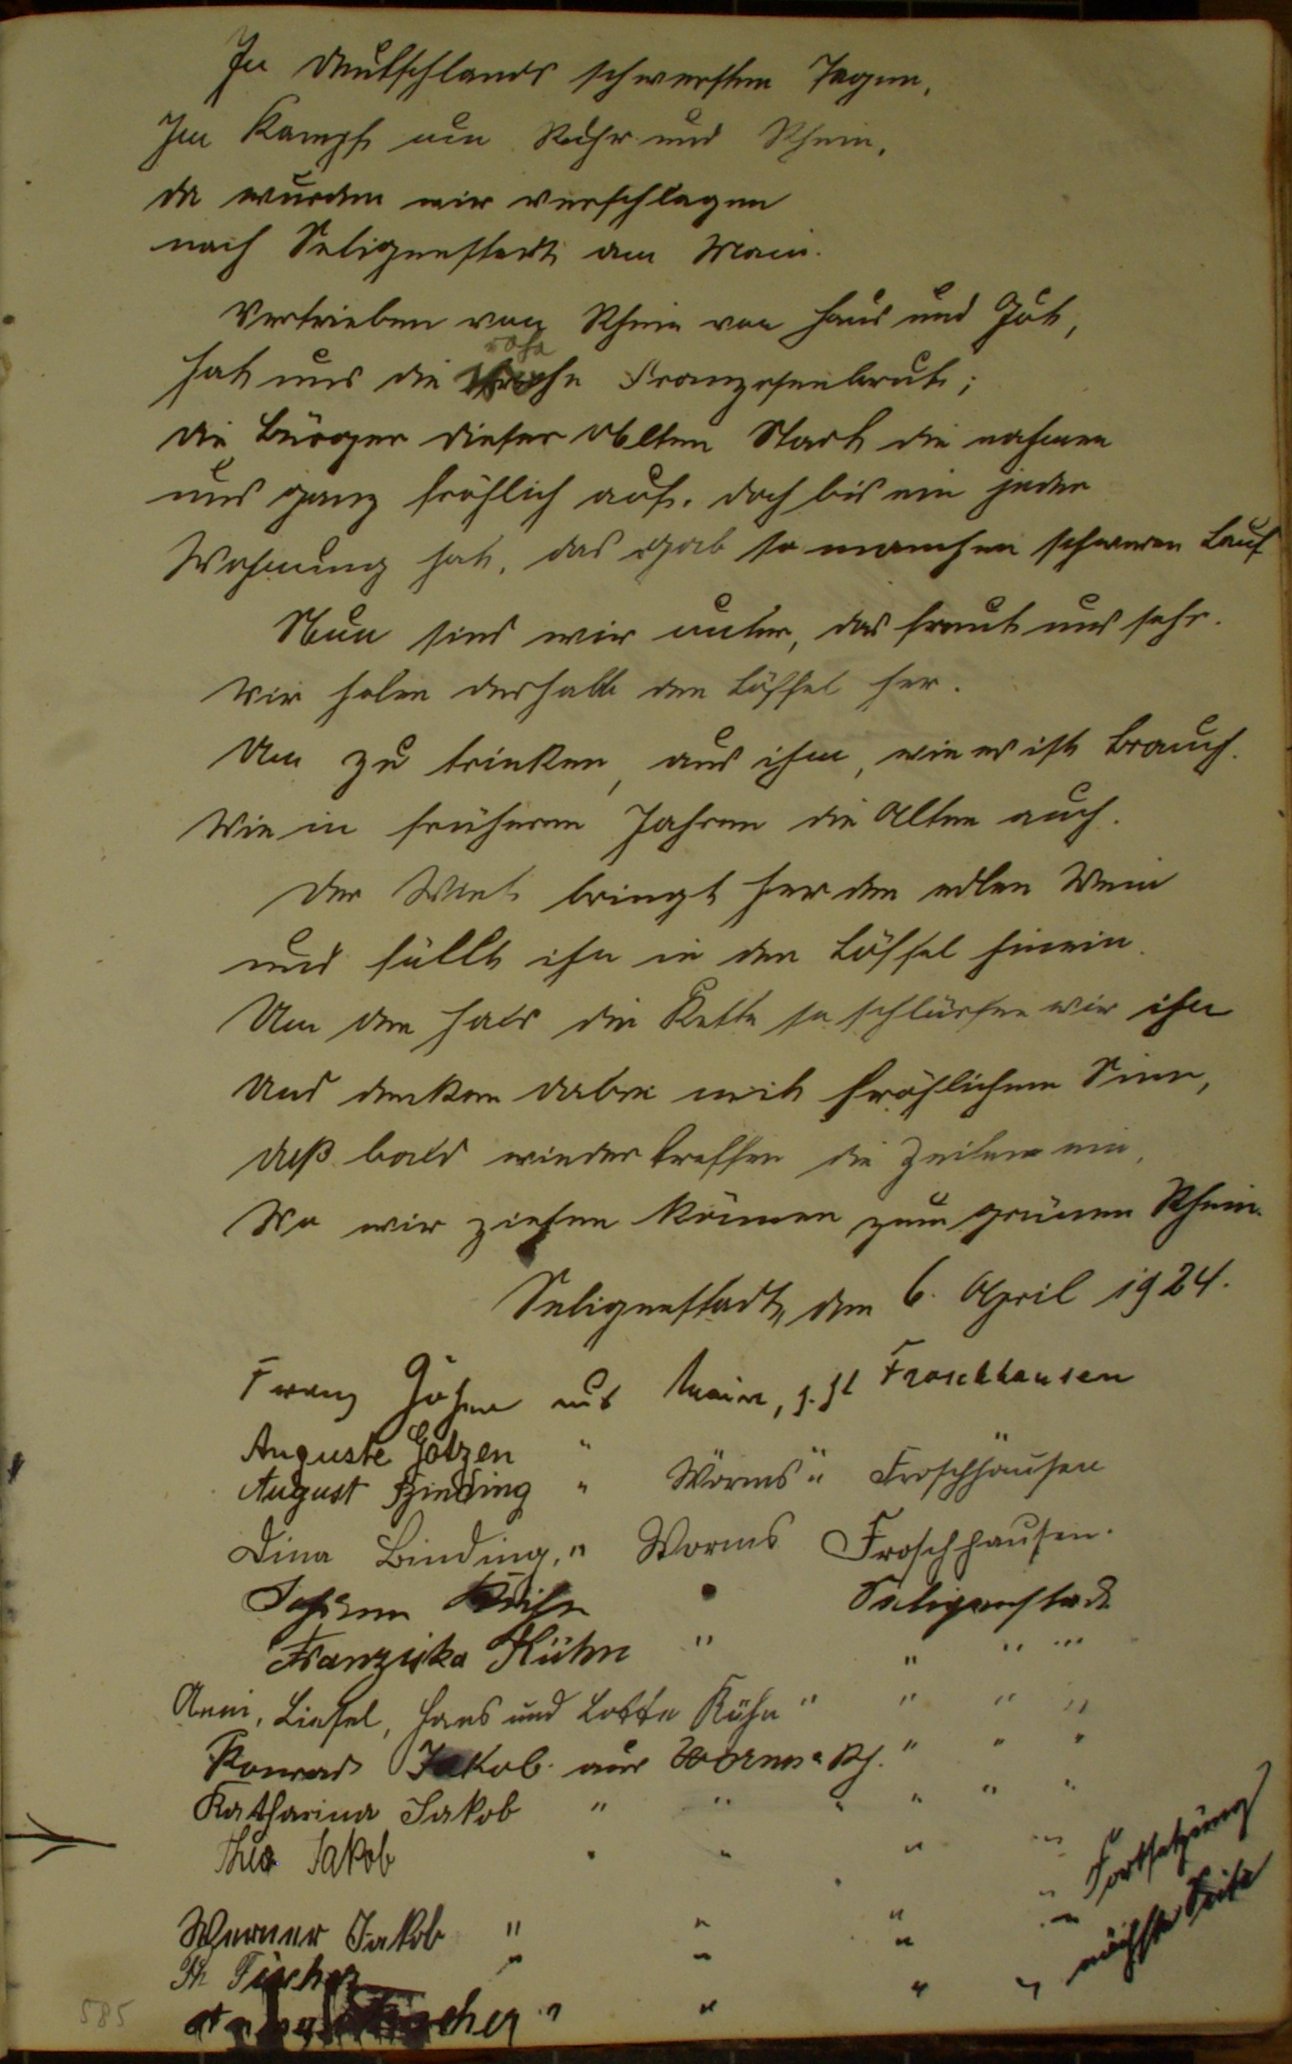 In Deutschlands schwersten Tagen,
Im Kampf um Ruhr und Rhein,
da wurden wir verschlagen
nach Seligenstadt am Main.
Vertrieben vom Rhein von Haus und Gut,
rohe
hat uns die Franzosenbrut;
die Bürger dieser alten Stadt die nahmen
uns ganz fröhlich auf. doch bis ein jeder
Wohnung hat, das gab so manchen schweren Lauf
Nun sind wir unter, das freut uns sehr.
Wir holen deshalb den Löffel her.
Um zu trinken, aus ihm, wie es ist Brauch.
Wie in früheren Jahren die Alten auch.
Der Wirt bringt her den edlen Wein
und füllt ihn in den Löffel hinein.
Um den Hals die Kette so schlürfen wir ihn
Und denken dabei mit fröhlichem Sinn,
daß bald wieder treffen die Zeiten ein,
Wo wir ziehen können zum grünen Rhein.
Seligenstadt, den 6. April 1924.
Franz aus Mainz, z. Zt Froschhausen
Auguste Götzen "
August Binding " Worms " Froschhausen
Dina Binding, " Worms Froschhausen.
Johann Kühn " Seligenstadt
Franziska Kühn " " " "
Anni, Liesel, Hans und Lotte Kühn " " " "
Konrad Jakob aus Worms a Rh. " " "
Katharina Jakob " " " " " "
Theo Jakob " " " "
Fortsetzung
nächste Seite
Werner Jakob " " " "
Fischer " " " "
" " " "
585